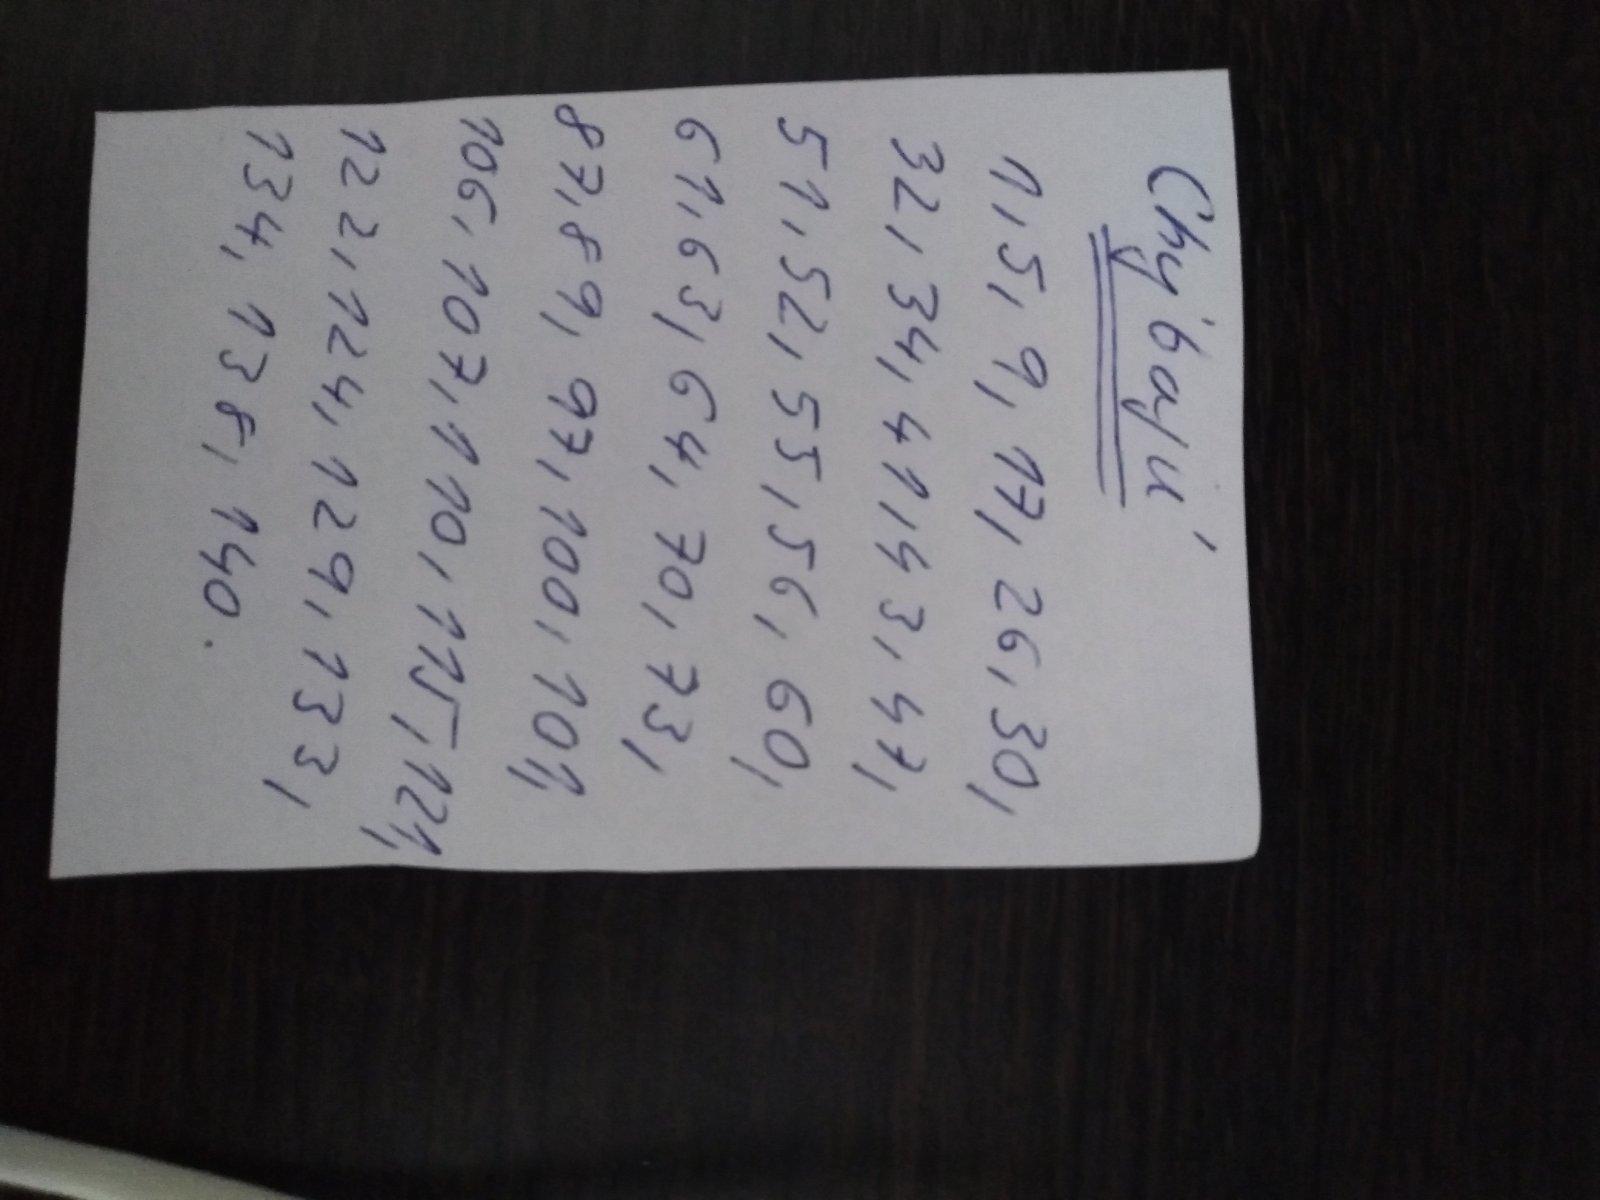 Chýbajú
1, 5, 9, 17, 26, 30,
32, 34, 41, 43, 47,
51, 52, 55, 56, 60,
61, 63, 64, 70, 73,
87, 89, 97, 100, 101,
106, 107, 110, 115, 121,
122, 124, 129, 133,
134, 138, 140.